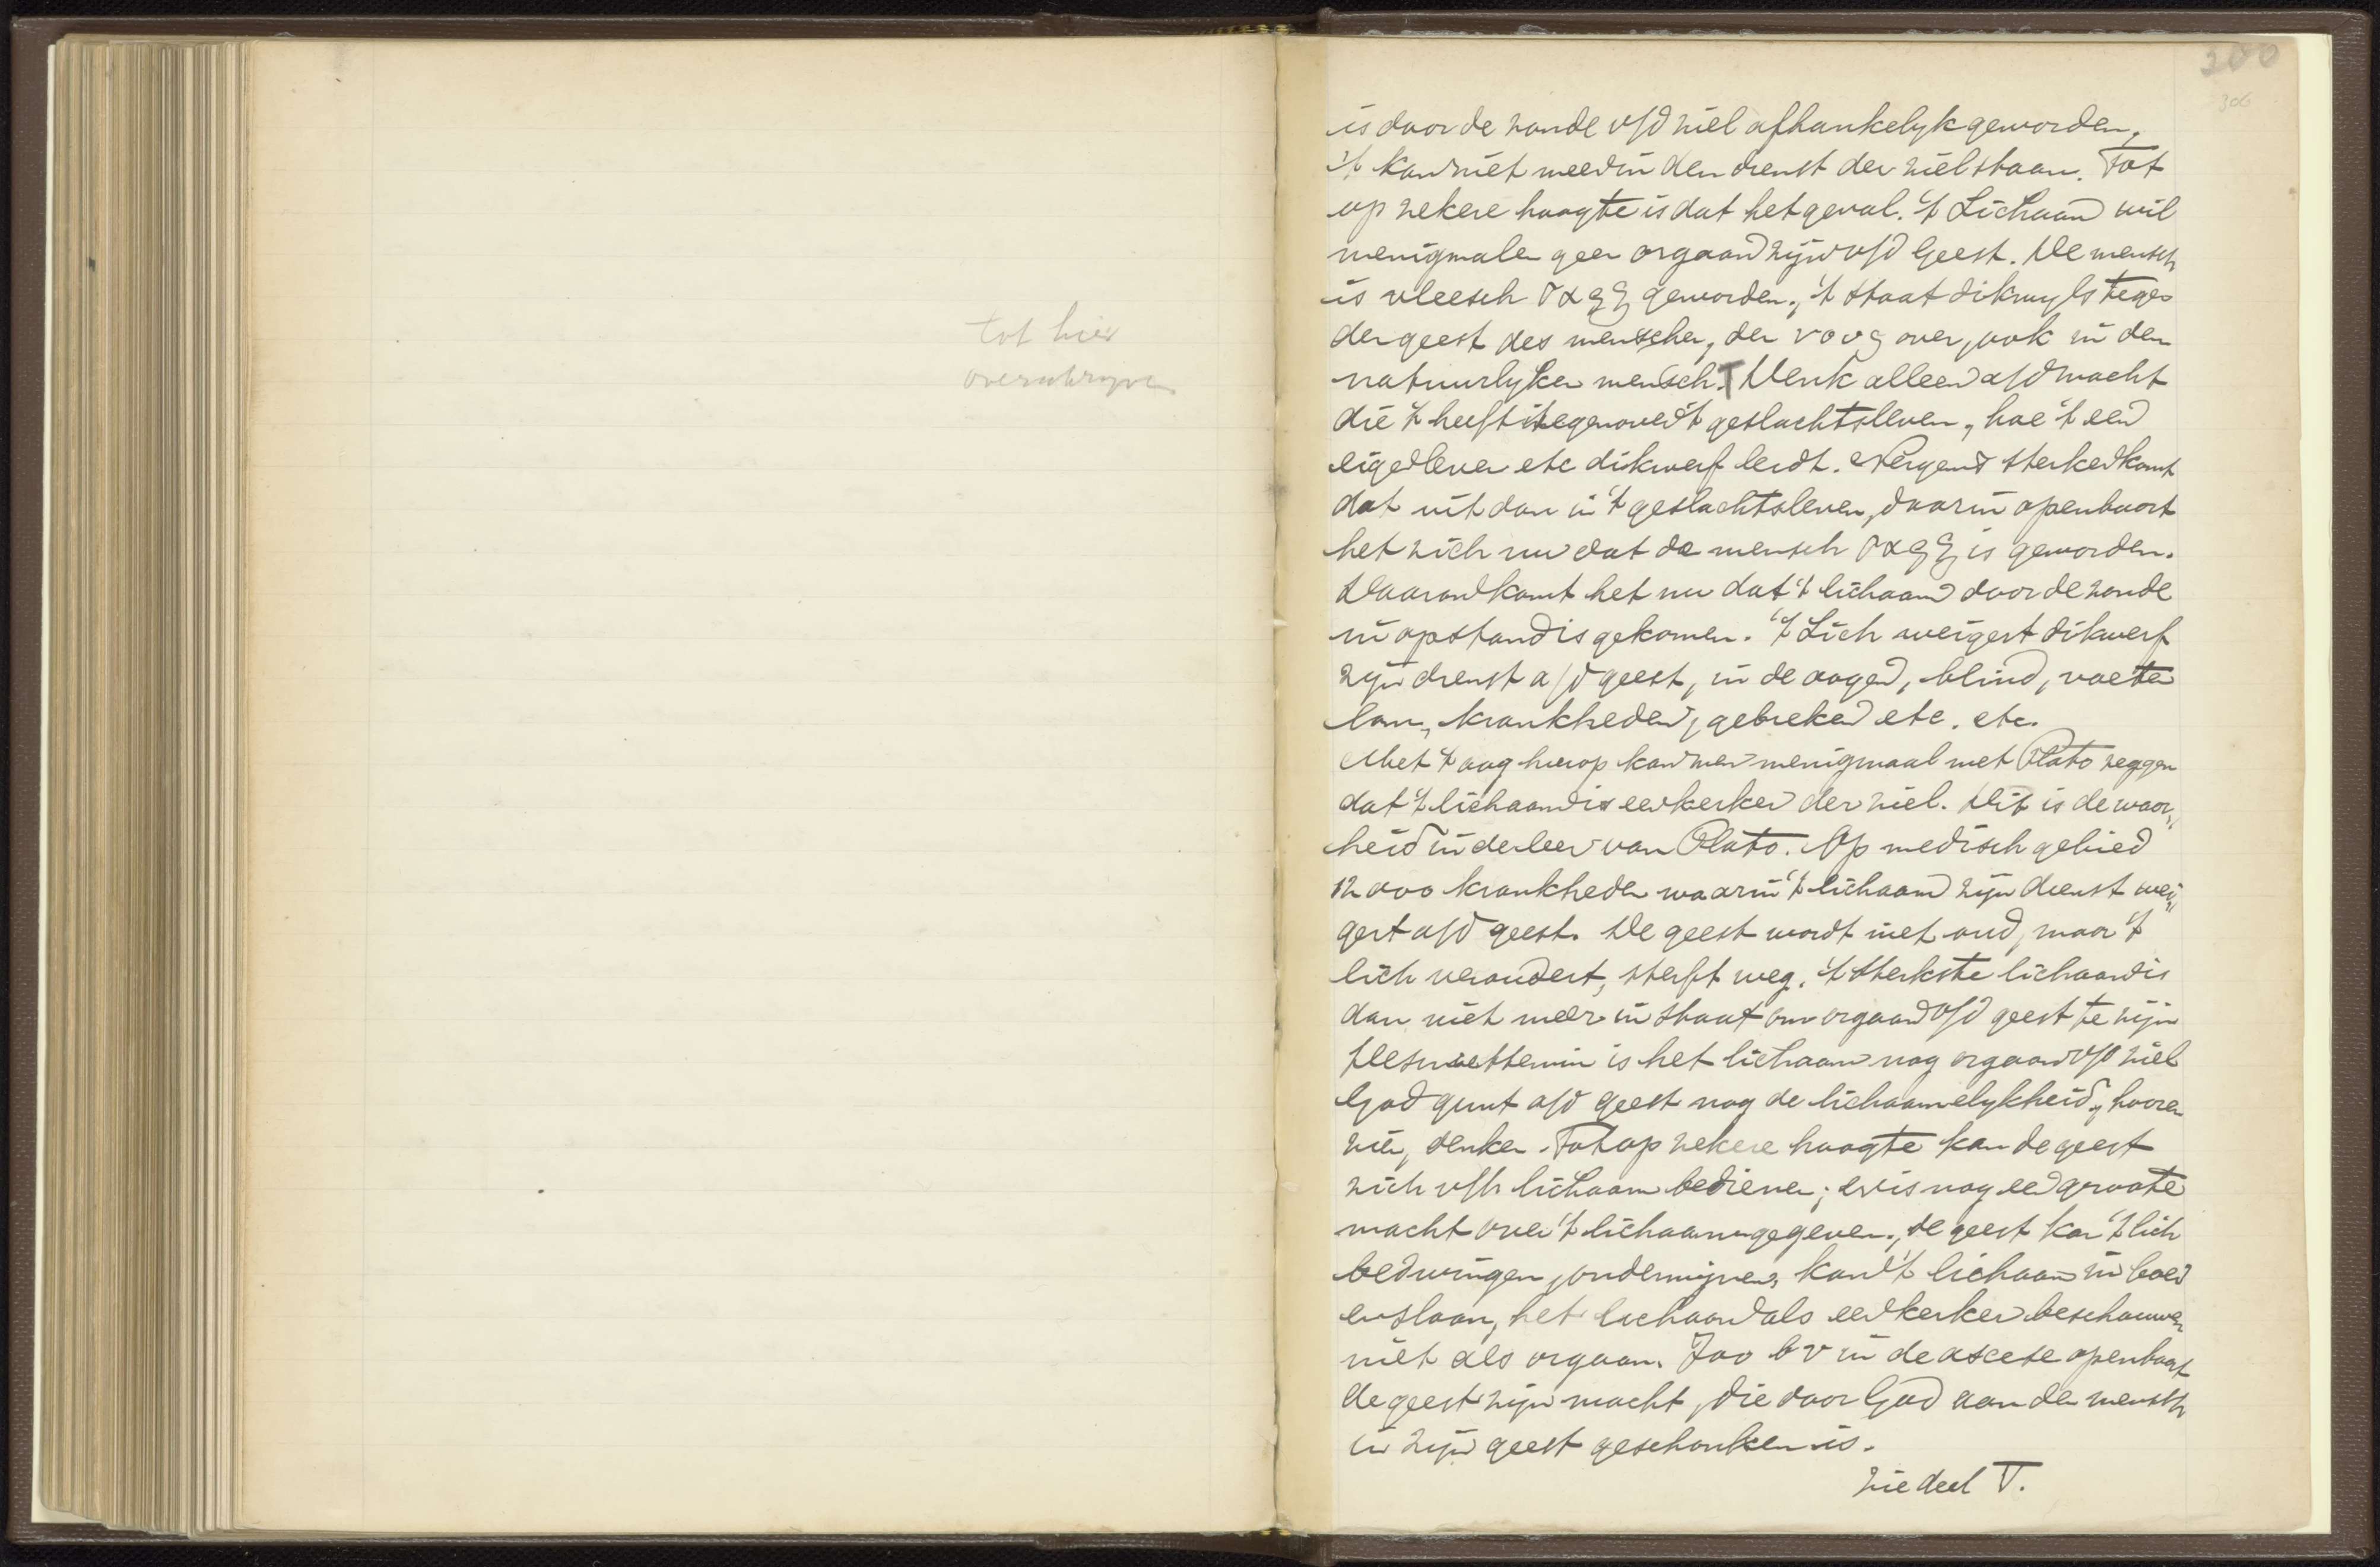 tot hier
overschryven
300
306
is door de zonde v/d ziel afhankelyk geworden,
't kan niet meer in den dienst der ziel staan. Tot
op zekere hoogte is dat het geval. 't Lichaam wil
menigmalen geen orgaan zijn v/d Geest. De mensch
is vleesch σαρξ geworden, 't staat dikwyls tegen
den geest des menschen, den νους over, ook in den
natuurlyken mensch. Denk alleen a/d macht
die 't heeft tegenover 't geslachtsleven, hoe 't een
eigen leven etc dikwerf leidt. Nergens sterker komt
dat uit dan in 't geslachtsleven, daarin openbaart
het zich nu dat de mensch σαρξ is geworden.
Daarom komt het nu dat 't lichaam door de zonde
in opstand is gekomen. 't Lich weigert dikwerf
zijn dienst a/d geest, in de oogen, blind, voeten
lam, krankheden, gebreken etc. etc.
Met 't oog hierop kan men menigmaal met Plato zeggen
dat 't lichaam is een kerker der ziel. Dit is de waar„
heid in de leer van Plato. Op medisch gebied
12000 krankheden waarin 't lichaam zijn dienst wei„
gert a/d geest. De geest wordt niet oud, maar 't
lich verandert, sterft weg. 't Sterkste lichaam is
dan niet meer in staat om orgaan v/d geest te zijn
Desniettemin is het lichaam nog orgaan v/d ziel
God gunt a/d geest nog de lichaamelykheid, hooren
zien, denken. Tot op zekere hoogte kan de geest
zich v/h lichaam bedienen; er is nog een groote
macht over 't lichaam gegeven., de geest kan 't lich
bedwingen, ondermijnen, kan 't lichaam in boei
en slaan, het lichaam als een kerker beschouwen
niet als orgaan. Zoo b v in de ascese openbaart
de geest zijn macht, die door God aan den mensch
in zijn geest geschonken is.
Zie deel V.